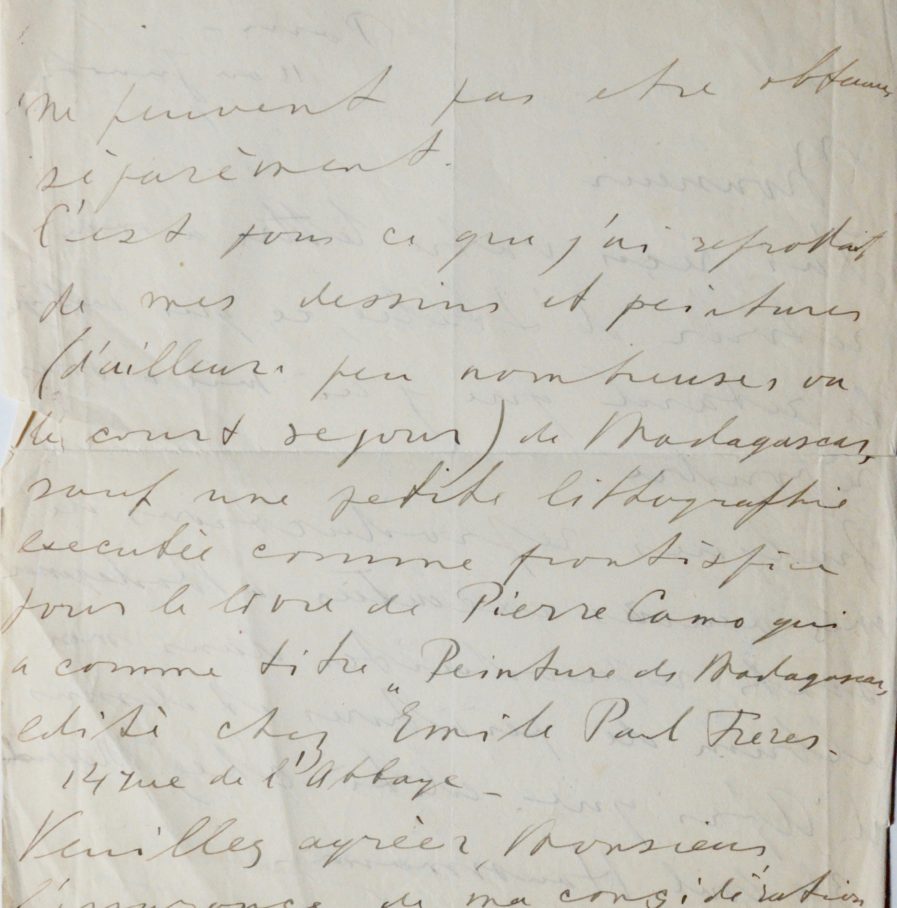 ne peuvent pas etre obtenues
séparèment.
C'est tous ce que j'ai reproduit
de mes dessins et peintures
(d'ailleurs peu nombreuses vu
le court sejour) de Madagascar,
sauf une petite litthographie
executée comme frontispice
pour le livre de Pierre Camo qui
a comme titre „Peinture de Madagascar,
editè chez Emile Paul Freres -
14 rue de l'Abbaye -
Veuillez agrèer Monsieur,
l'assurance de ma considération